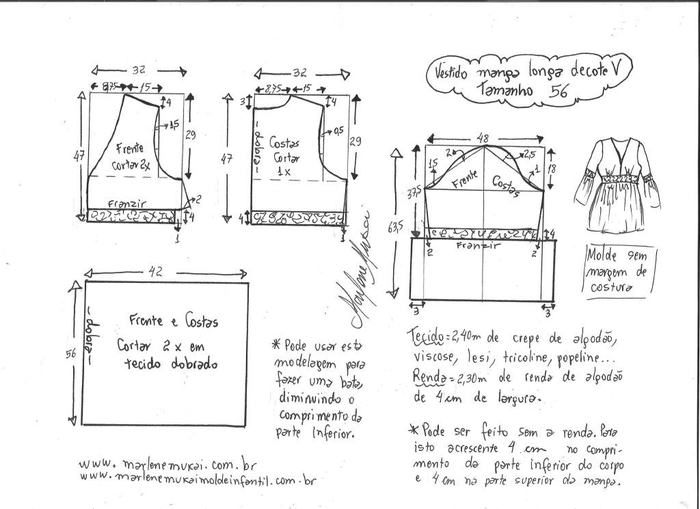 Vestido manga longa decote V
Tamanho 56
32
8,75
15
4
1,5
29
47
Frente
cortar 2x
Franzir
2
4
1
32
8,75
15
3
4
0,5
29
47
dobra
Costas
Cortar
1x
4
1
48
2
2,5
1,5
1
18
Frente
Costas
37,5
63,5
Franzir
4
2
2
3
3
Molde sem
margem de
costura
Marlene Mukai
42
56
dobra
Frente e Costas
Cortar 2 x em
tecido dobrado
* Pode usar esta
modelagem para
fazer uma bata,
diminuindo o
comprimento da
parte inferior.
Tecido=2,40m de crepe de algodão,
viscose, lesi, tricoline, popeline...
Renda=2,30m de renda de algodão
de 4 cm de largura.
* Pode ser feito sem a renda. Para
isto acrescente 4 cm no compri-
mento da parte inferior do corpo
e 4 cm na parte superior da manga.
www.marlenemukai.com.br
www.marlenemukaimoldeinfantil.com.br